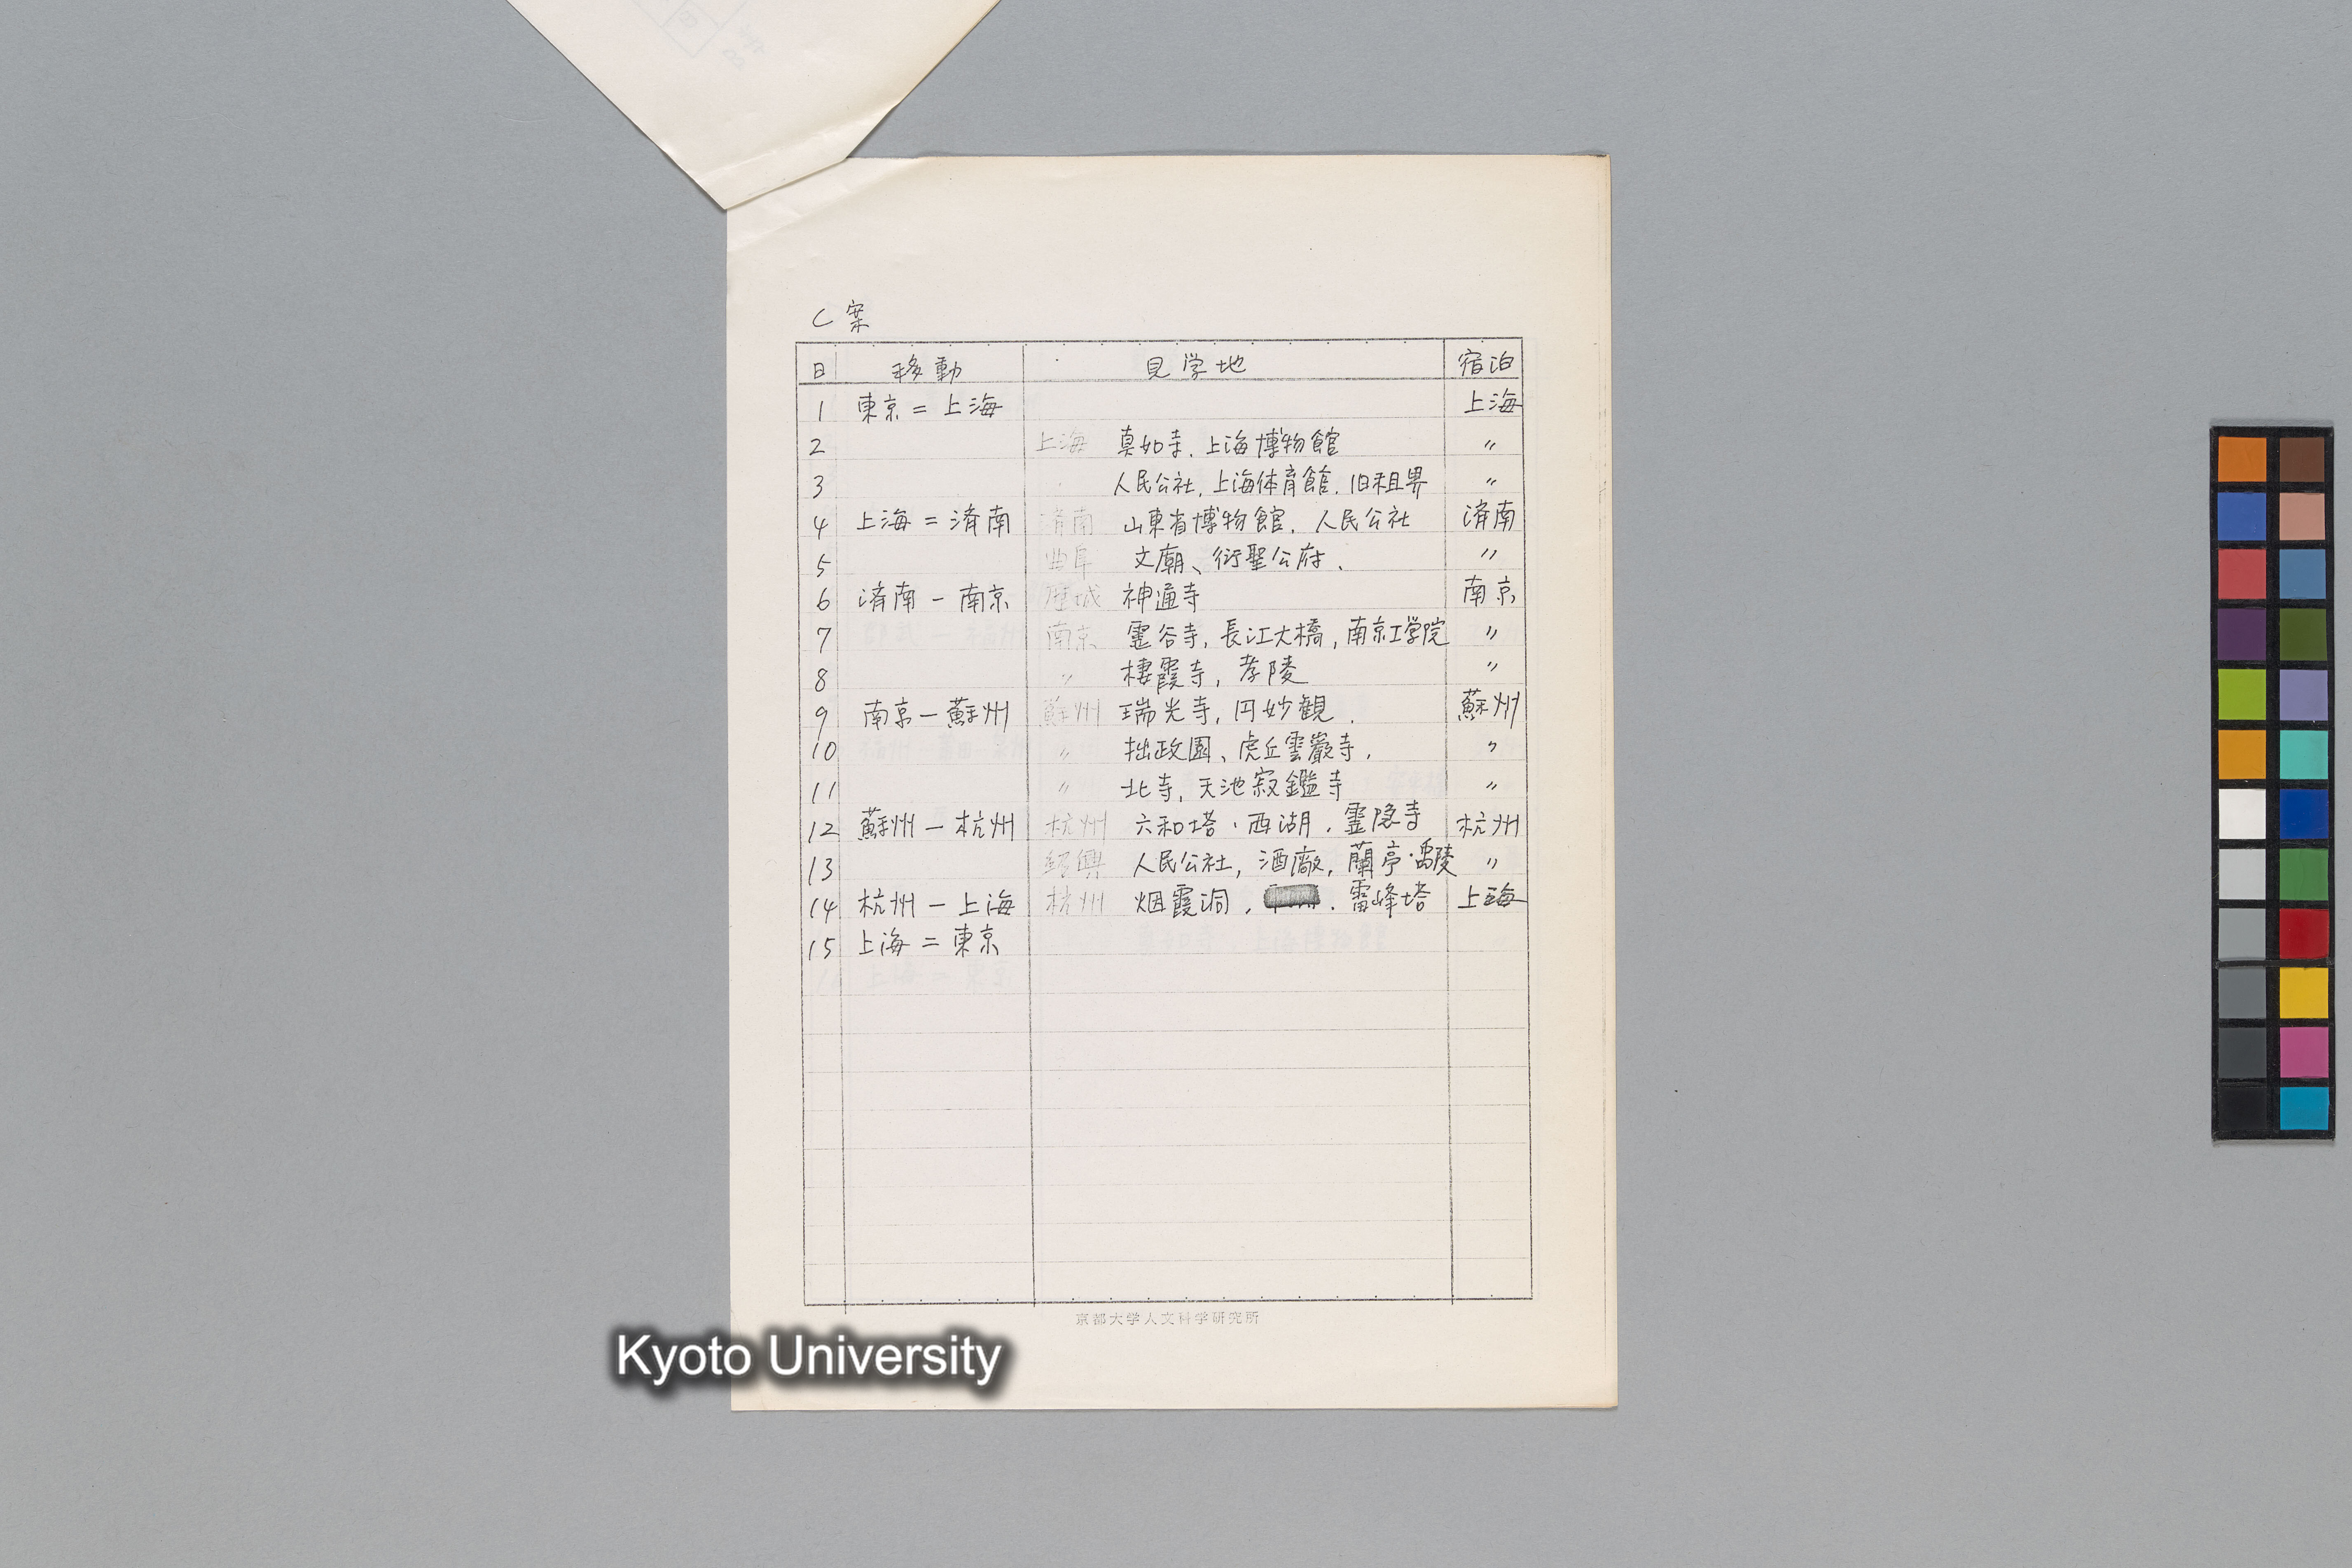 C案
日 移動 見学地 宿泊
1 東京=上海 上海
2 上海 真如寺.上海博物館 〃
3 人民公社,上海体育館.旧租界 〃
4 上海=済南 済南 山東省博物館.人民公社 済南
5 曲阜 文廟、衍聖公府. 〃
6 済南-南京 歴城 神通寺 南京
7 南京 霊谷寺,長江大橋,南京工学院 〃
8 〃 棲霞寺,孝陵 〃
9 南京-蘇州 蘇州 瑞光寺,円妙観. 蘇州
10 〃 拙政園、虎丘雲巖寺. 〃
11 〃 北寺,天池寂鑑寺 〃
12 蘇州-杭州 杭州 六和塔・西湖.霊隠寺 杭州
13 紹興 人民公社,酒廠,蘭亭・禹陵 〃
14 杭州-上海 杭州 烟霞洞,.雷峰塔 上海
15 上海=東京
京都大学人文科学研究所
Kyoto University